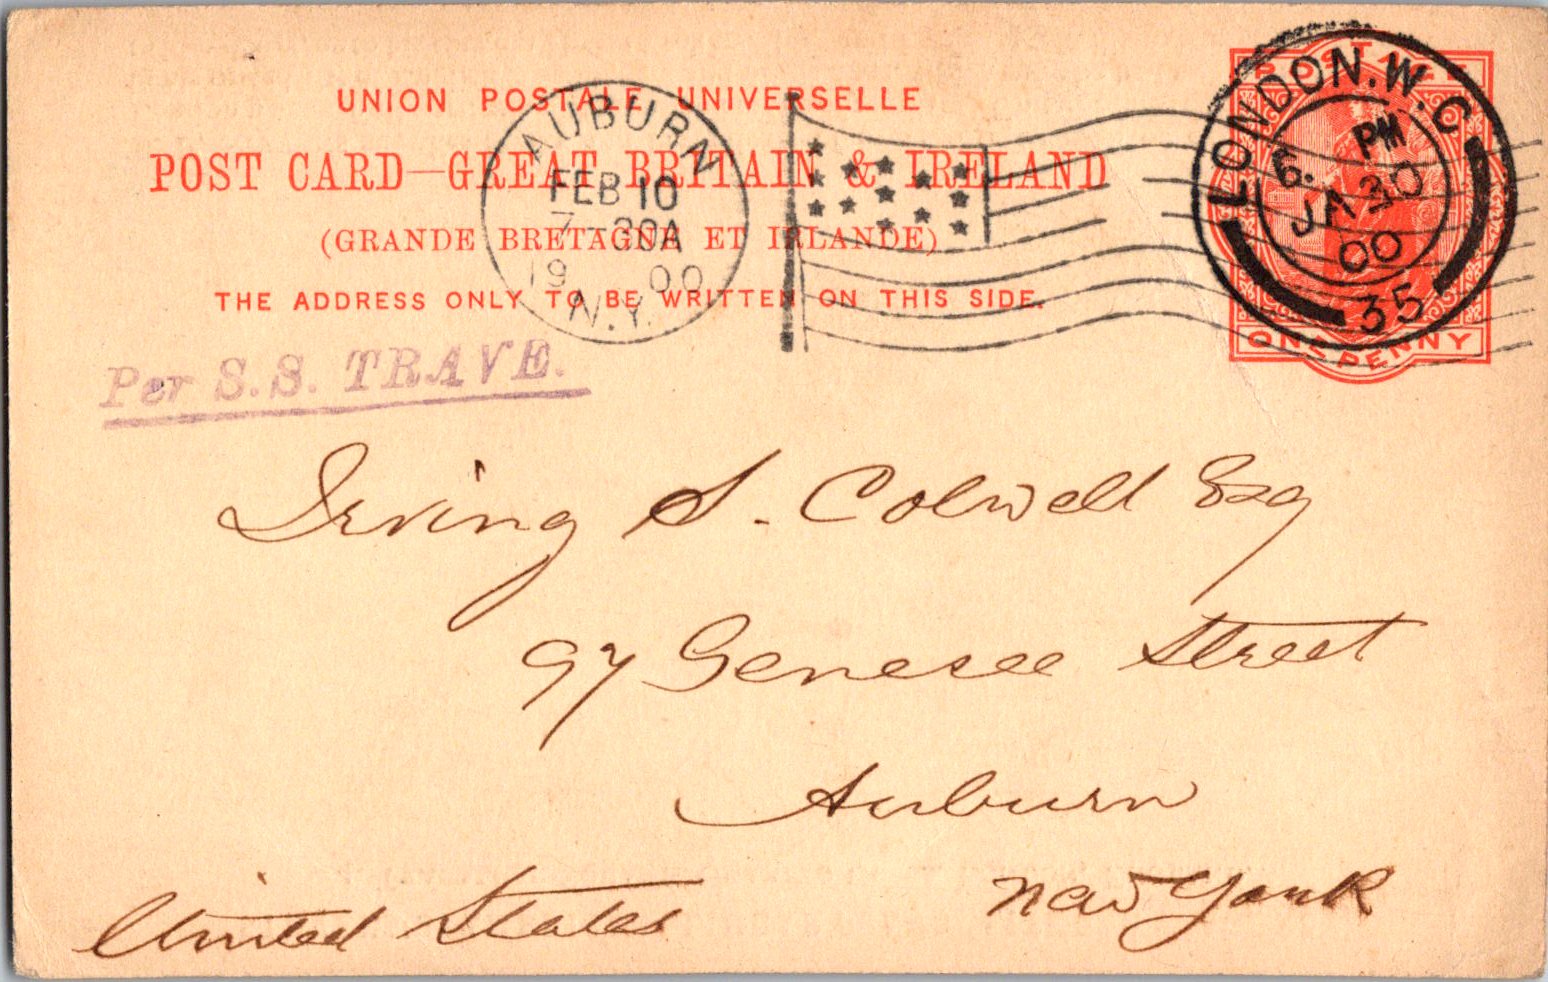 UNION POSTALE UNIVERSELLE
POST CARD—GREAT BRITAIN & IRELAND
(GRANDE BRETAGNE ET IRLANDE)
THE ADDRESS ONLY TO BE WRITTEN ON THIS SIDE.
AUBURN
FEB 10
7-30A
1900
N.Y.
POSTAGE
ONE PENNY
LONDON.W.C
6. PM
JA 30
00
35
Per S.S. TRAVE.
Irving S. Colwell Esq
97 Genesee Street
Auburn
New York
United States